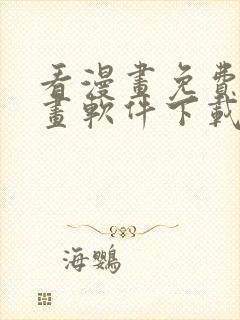 看漫畫免費
畫軟件下載
海鸚